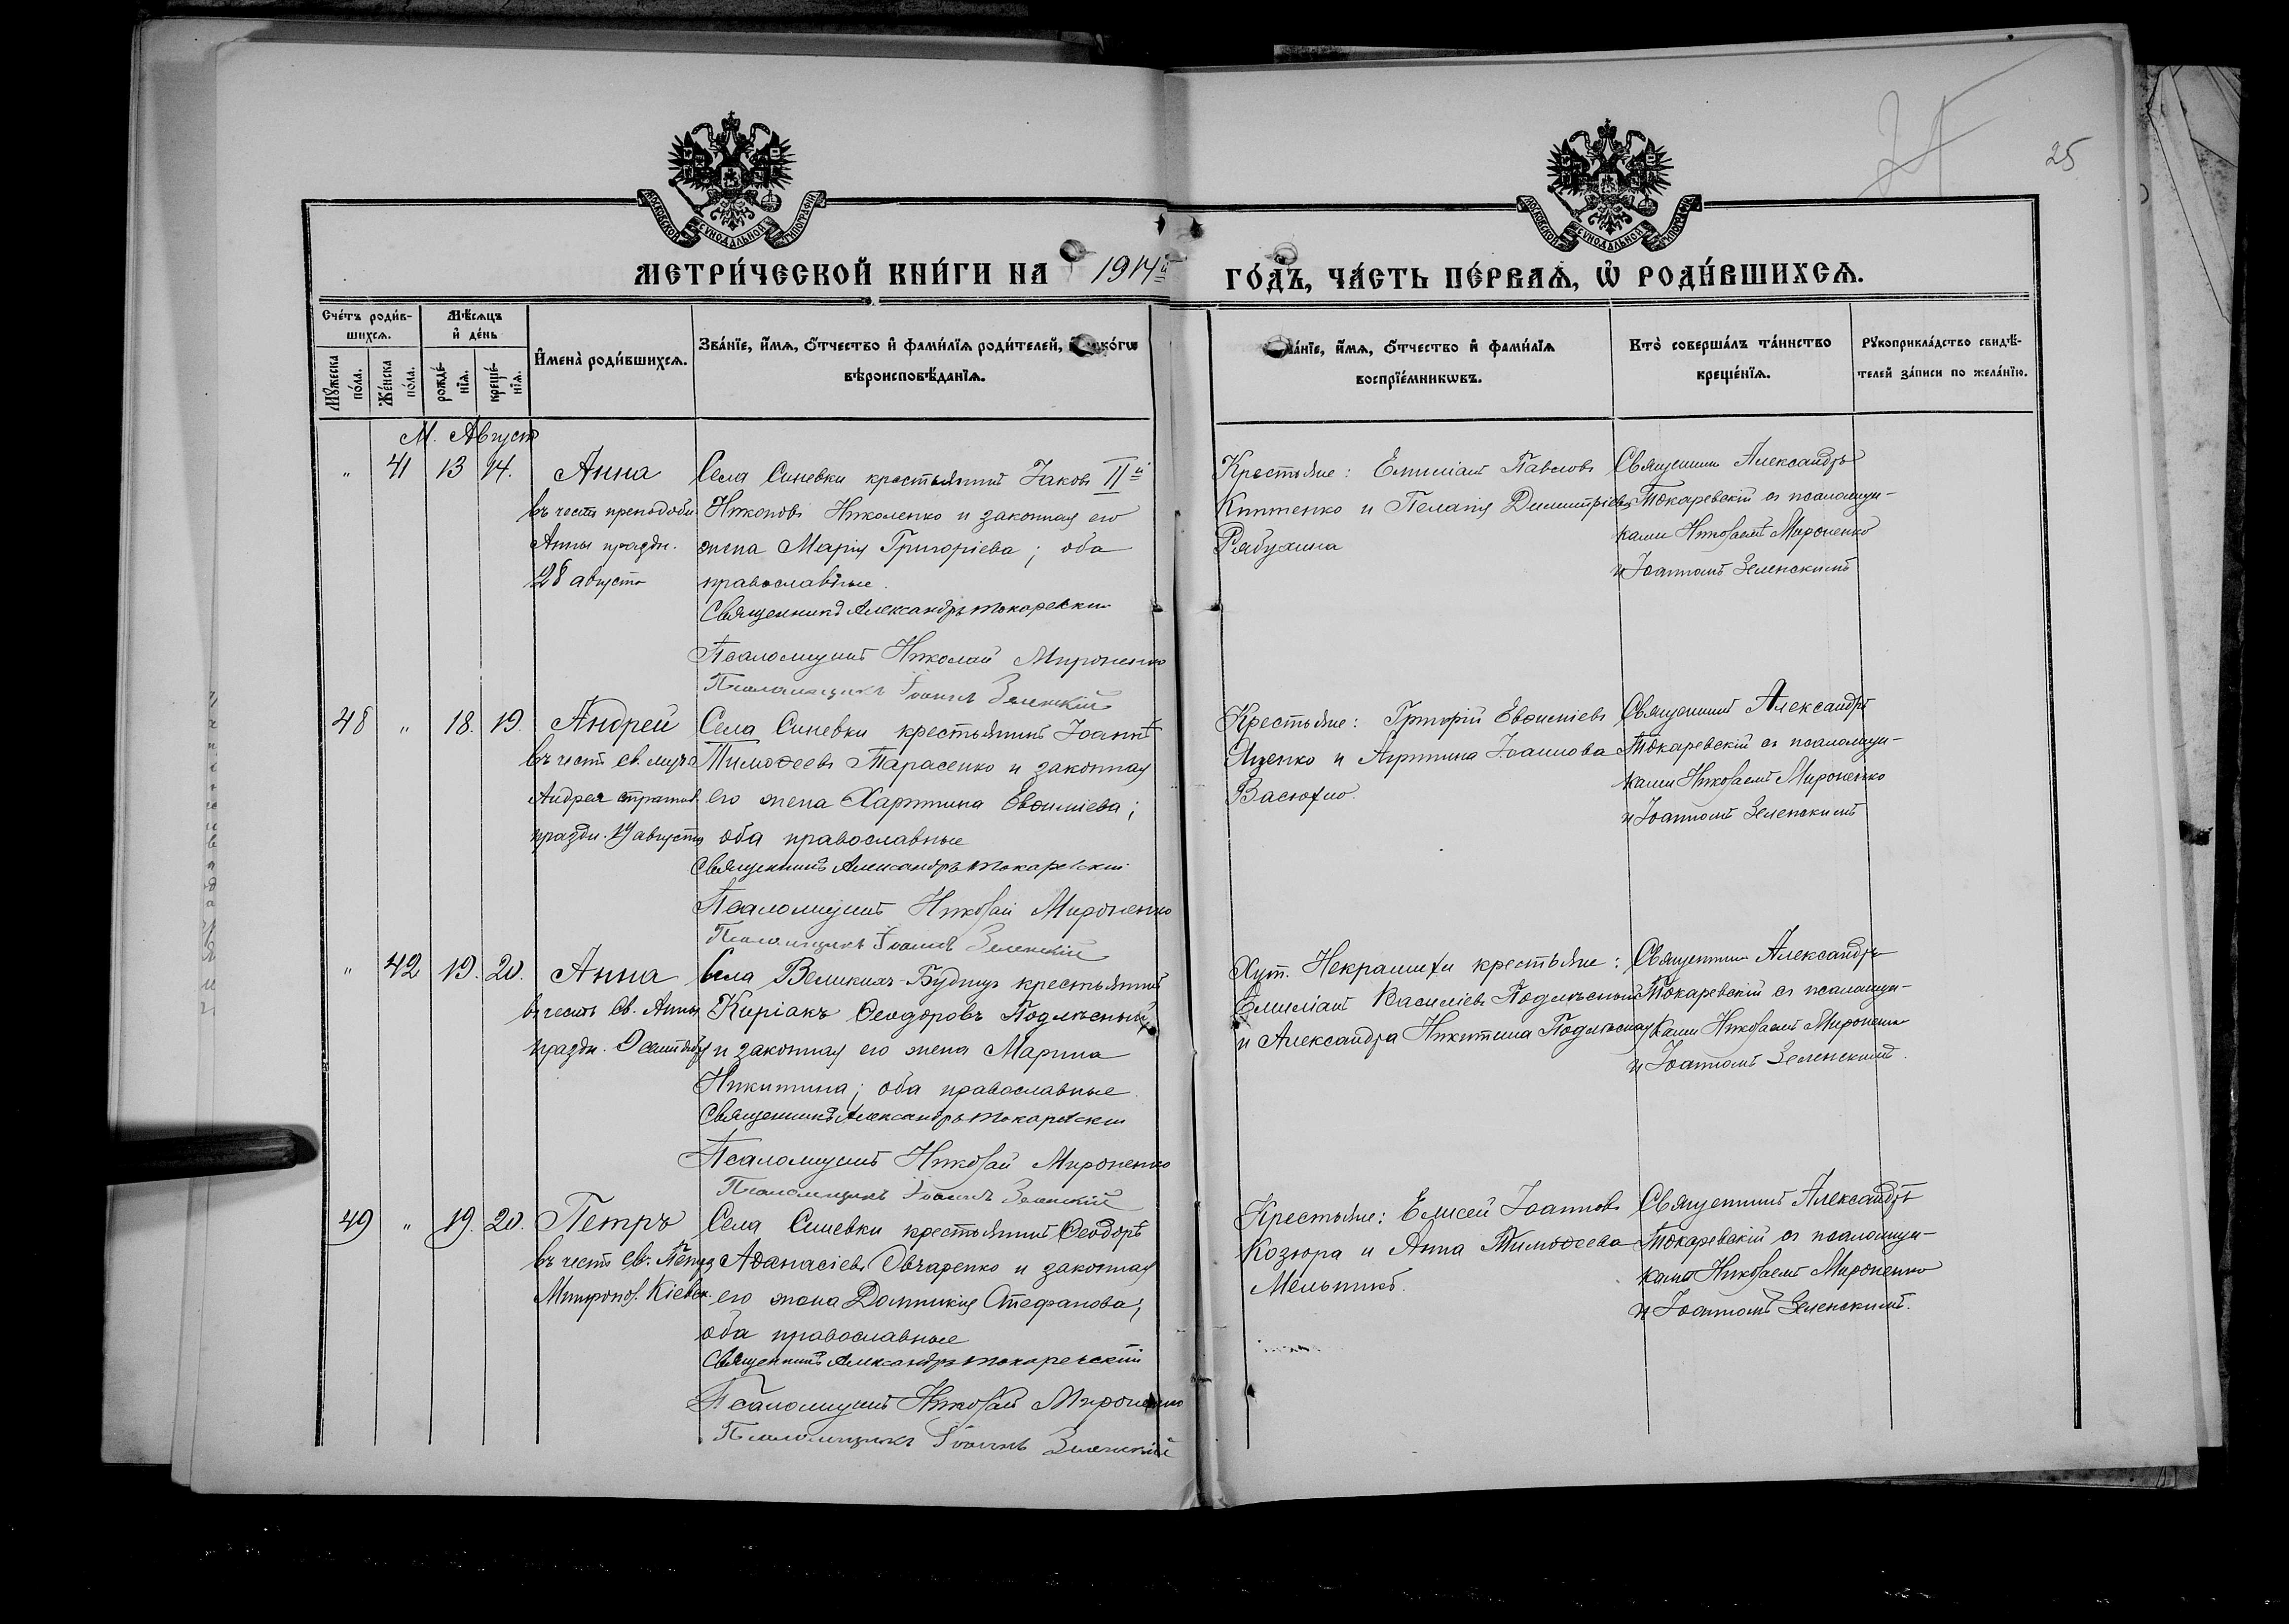 25
МОСКОВСКОЙ СѴНОДАЛЬНОЙ ТИПОГРАФІИ
МОСКОВСКОЙ СѴНОДАЛЬНОЙ ТИПОГРАФІИ
МЕТРИ́ЧЕСКОЙ КНИ́ГИ НА 1914й ГО́ДЪ, ЧА́СТЬ ПЕ́РВАѦ, Ѡ҆ РОДИ́ВШИХСѦ.
Сче́тъ роди́в-
шихсѧ.
Мꙋ́жеска по́ла.
Же́нска по́ла.
Мѣ́сѧцъ
и҆ де́нь
рожде́-
нїѧ.
креще́-
нїѧ.
И҆мена̀ роди́вшихсѧ.
Зва́нїе, и҆́мѧ, ѻ҆́тчество и҆ фами́лїѧ роди́телей, и҆ како́гѡ
вѣроисповѣ́данїѧ.
Зва́нїе, и҆́мѧ, ѻ҆́тчество и҆ фами́лїѧ
воспрїе́мникѡвъ.
Кто̀ соверша́лъ та́инство
креще́нїѧ.
Рꙋкоприкла́дство свидѣ́-
телей за́писи по жела́нїю.
М. Августъ
" 41 13 14. Анна
въ честь преподобн.
Анны праздн.
28 августа
Села Синевки крестьянинъ Іаковъ IIй
Никоновъ Николенко и законная его
жена Марія Григоріева; оба
православные.
Священникъ Александръ Токаревскій
Псаломщикъ Николай Мироненко
Псаломщикъ Іоаннъ Зеленскій
Крестьяне: Емиліанъ Павловъ
и Пелагія Димитріева
Рябухина
Священникъ Александръ
Токаревскій съ псаломщи-
ками Николаемъ Мироненко
и Іоанномъ Зеленскимъ
48 " 18. 19. Андрей
въ честь св. муч.
Андрея стратил.
праздн. 19 августа
Села Синевки крестьянинъ Іоаннъ
Тимоѳеевъ Тарасенко и законная
его жена Харитина Евѳиміева;
оба православные
Священникъ Александръ Токаревскій
Псаломщикъ Николай Мироненко
Псаломщикъ Іоаннъ Зеленскій
Крестьяне: Григорій Евѳиміевъ
Яценко и Агрипина Іоаннова
Васюхно.
Священникъ Александръ
Токаревскій съ псаломщи-
ками Николаемъ Мироненко
и Іоанномъ Зеленскимъ
" 42 19. 20. Анна
въ честь св. Анны
праздн. 9 сентября
Села Великихъ-Будищъ крестьянинъ
Киріакъ Ѳеодоровъ Подлѣсный
и законная его жена Марина
Никитина; оба православные.
Священникъ Александръ Токаревскій
Псаломщикъ Николай Мироненко
Псаломщикъ Іоаннъ Зеленскій
Хут. крестьяне:
Емиліанъ Василіевъ Подлѣсный
и Александра Никитина Подлѣсная
Священникъ Александръ
Токаревскій съ псаломщи-
ками Николаемъ Мироненко
и Іоанномъ Зеленскимъ.
49 " 19. 20. Петръ
въ честь св. Петра
Митропол. Кіевск.
Села Синевки крестьянинъ Ѳеодоръ
Аѳанасіевъ Овчаренко и законная
его жена Домникія Стефанова;
оба православные
Священникъ Александръ Токаревскій
Псаломщикъ Николай Мироненко
Псаломщикъ Іоаннъ Зеленскій
Крестьяне: Елисей Іоанновъ
Козюра и Анна Тимоѳеева
Мельникъ.
Священникъ Александръ
Токаревскій съ псаломщи-
ками Николаемъ Мироненко
и Іоанномъ Зеленскимъ.